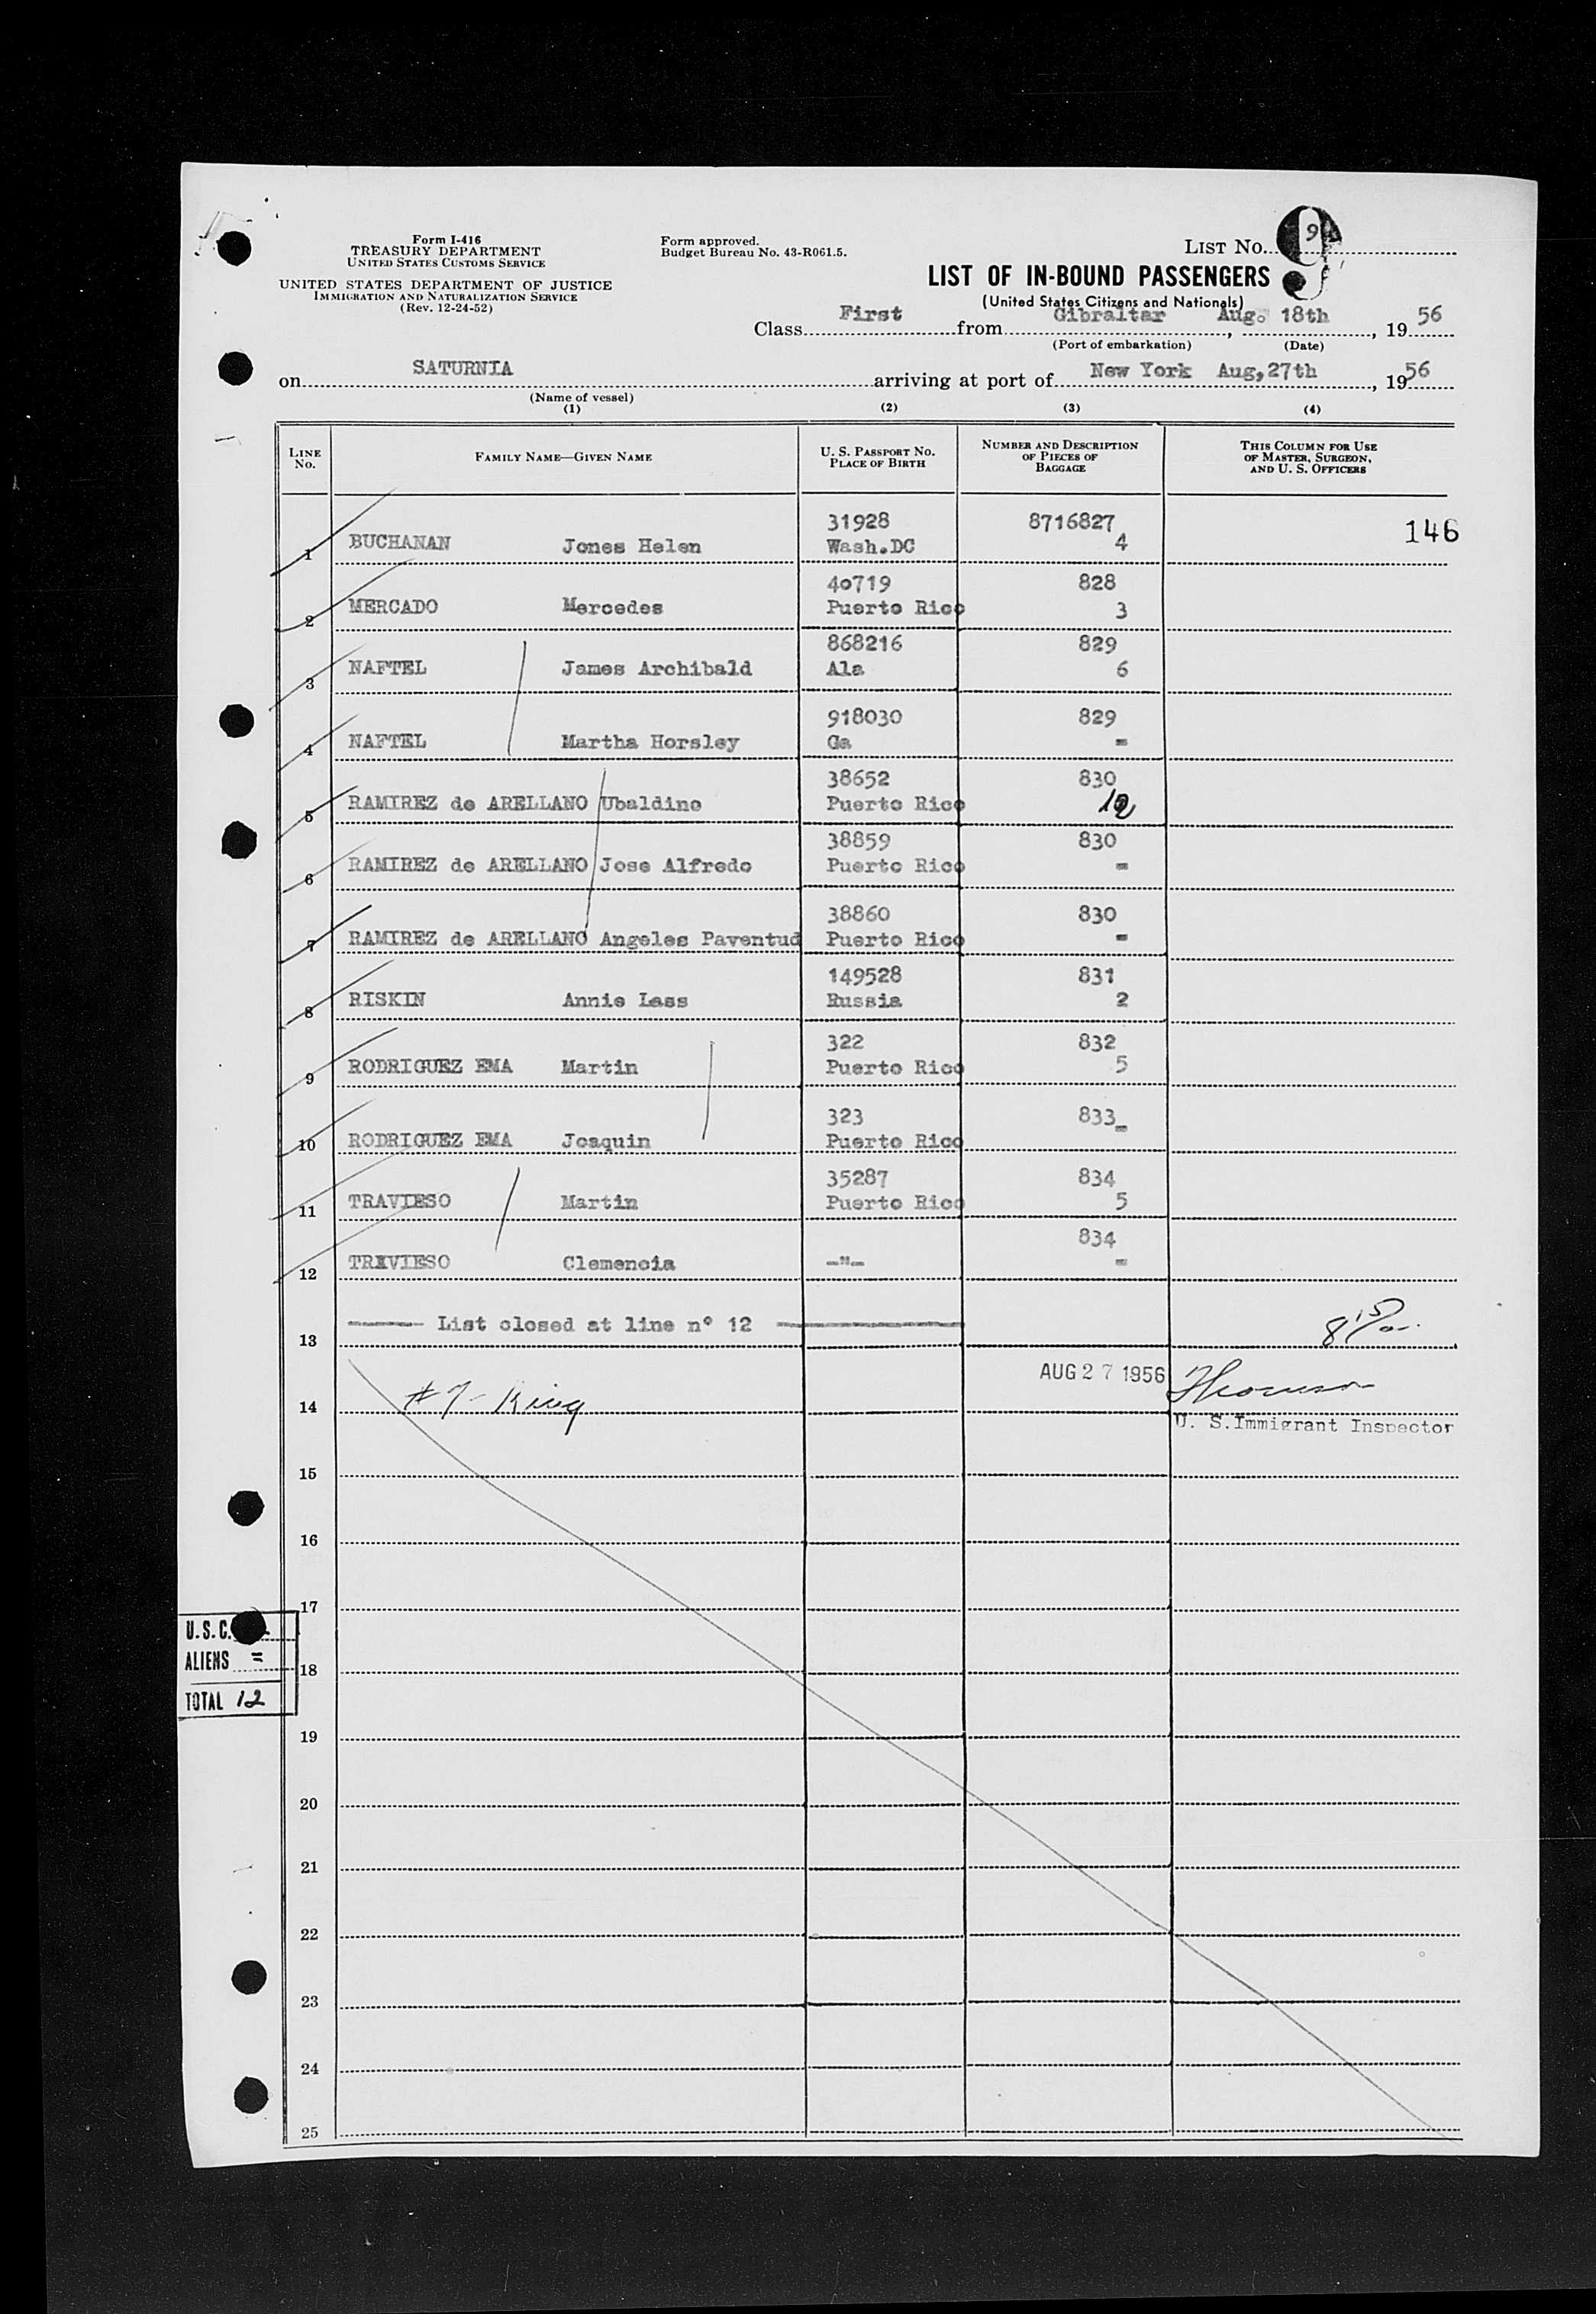 Form I-416
TREASURY DEPARTMENT
UNITED STATES CUSTOMS SERVICE
UNITED STATES DEPARTMENT OF JUSTICE
IMMIGRATION AND NATURALIZATION SERVICE
(Rev. 12-24-52)
Form approved.
Budget Bureau No. 43-R061.5.
LIST NO. 9
9
LIST OF IN-BOUND PASSENGERS
(United States Citizens and Nationals)
Class First from Gibraltar Aug. 18th, 1956
(Port of embarkation) (Date)
on SATURNIA arriving at port of New York Aug,27th, 1956
(Name of vessel)
(1) (2) (3) (4)
LINE NO. FAMILY NAME—GIVEN NAME U. S. PASSPORT NO. PLACE OF BIRTH NUMBER AND DESCRIPTION OF PIECES OF BAGGAGE THIS COLUMN FOR USE OF MASTER, SURGEON, AND U. S. OFFICERS
31928 8716827 146
1 BUCHANAN Jones Helen Wash.DC 4
40719 828
2 MERCADO Mercedes Puerto Rico 3
868216 829
3 NAFTEL James Archibald Ala 6
918030 829
4 NAFTEL Martha Horsley Ga =
38652 830
5 RAMIREZ de ARELLANO Ubaldino Puerto Rico 12
38859 830
6 RAMIREZ de ARELLANO Jose Alfredo Puerto Rico =
38860 830
7 RAMIREZ de ARELLANO Angeles Paventud Puerto Rico =
149528 831
8 RISKIN Annie Lass Russia 2
322 832
9 RODRIGUEZ EMA Martin Puerto Rico 5
323 833
10 RODRIGUEZ EMA Joaquin Puerto Rico =
35287 834
11 TRAVIESO Martin Puerto Rico 5
834
12 TRAVIESO Clemencia -"- =
13 List closed at line n° 12
AUG 27 1956
14 #7- King
U. S. Immigrant Inspector
15
16
17
U.S.C.
ALIENS =
18
TOTAL 12
19
20
21
22
23
24
25